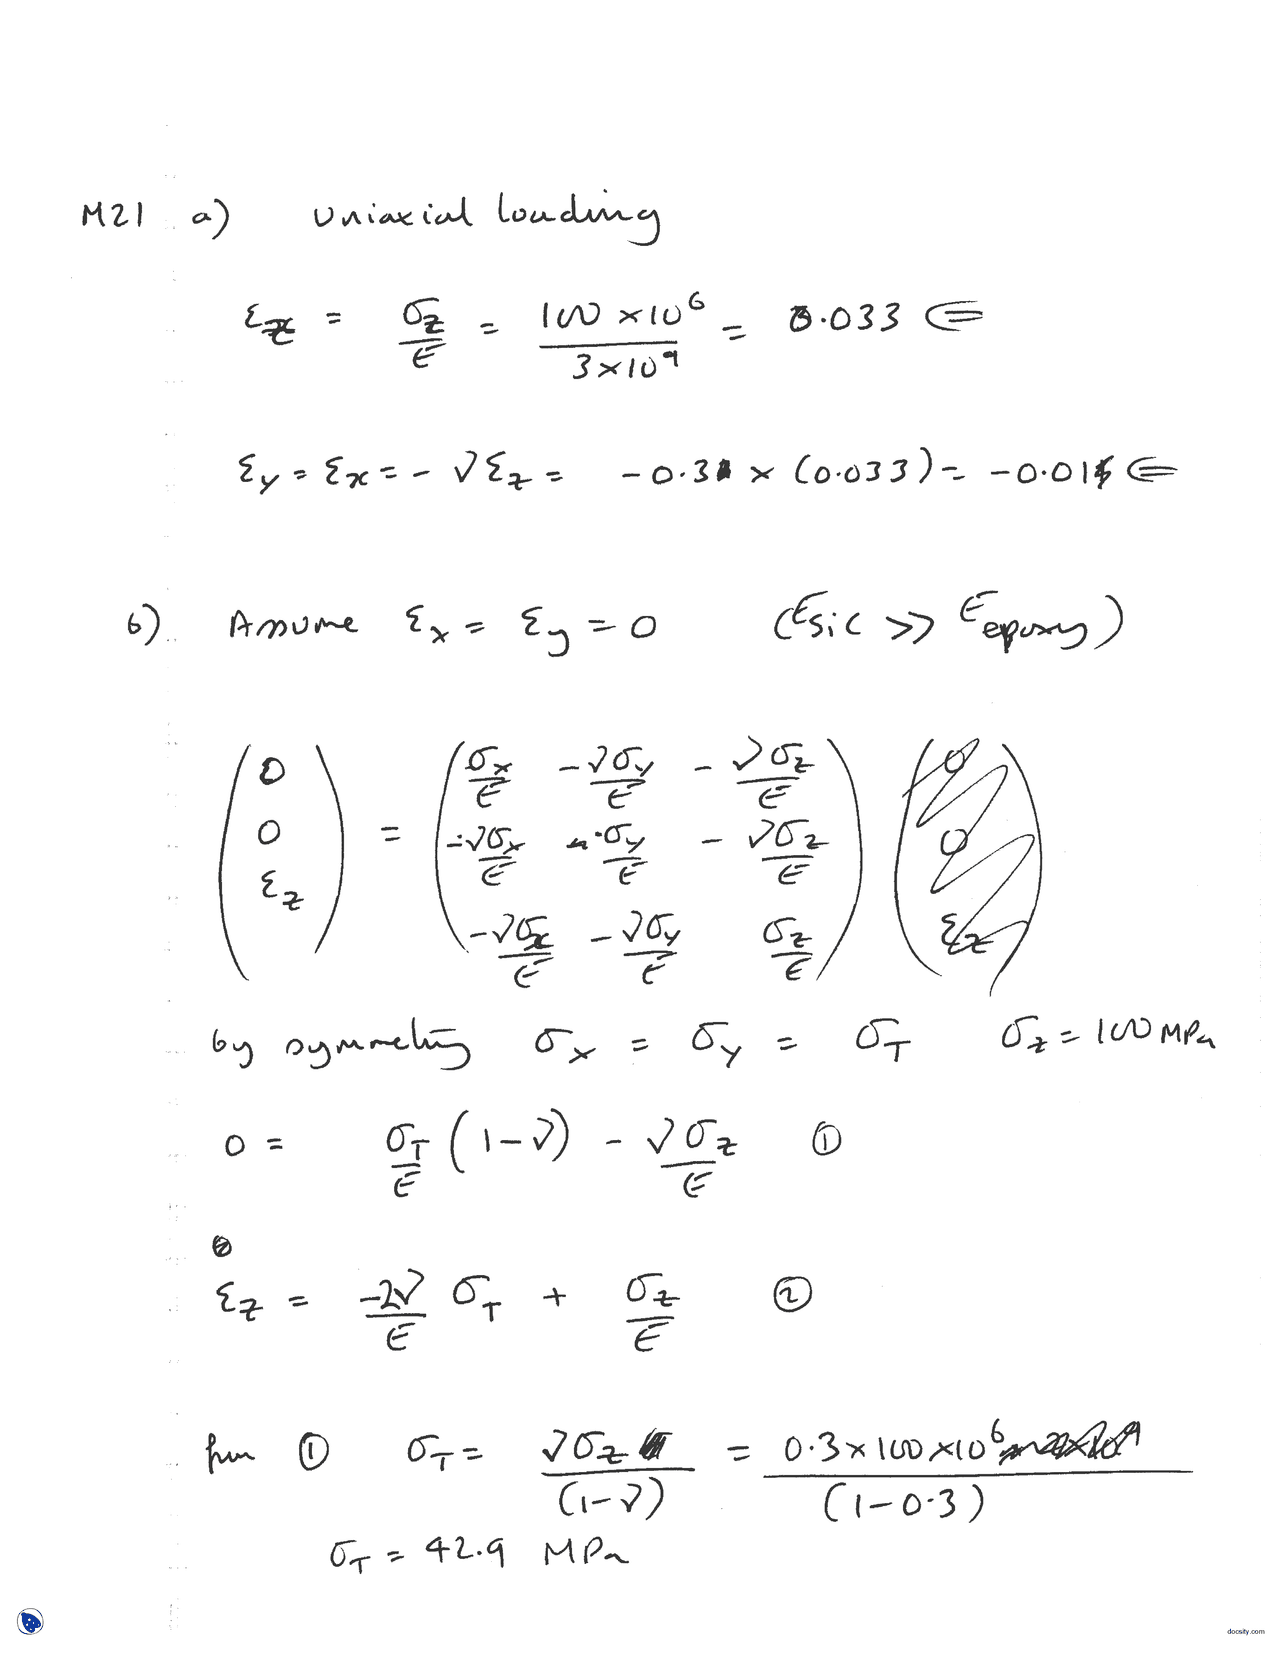 M21 a) Uniaxial loading
εz = σz/E = 100 × 10^6 / 3 × 10^9 = 0.033 ⇐
εy = εx = - νεz = -0.3 × (0.033) = -0.01 ⇐
b) Assume εx = εy = 0 (ESiC >> Eepoxy)
(0 0 εz) = (σx/E -νσy/E -νσz/E
-νσx/E σy/E -νσz/E
-νσx/E -νσy/E σz/E)
by symmetry σx = σy = σT σz = 100 MPa
0 = σT/E (1-ν) - νσz/E ①
εz = -2ν/E σT + σz/E ②
from ① σT = νσz/(1-ν) = 0.3 × 100 × 10^6/(1-0.3)
σT = 42.9 MPa
docsity.com